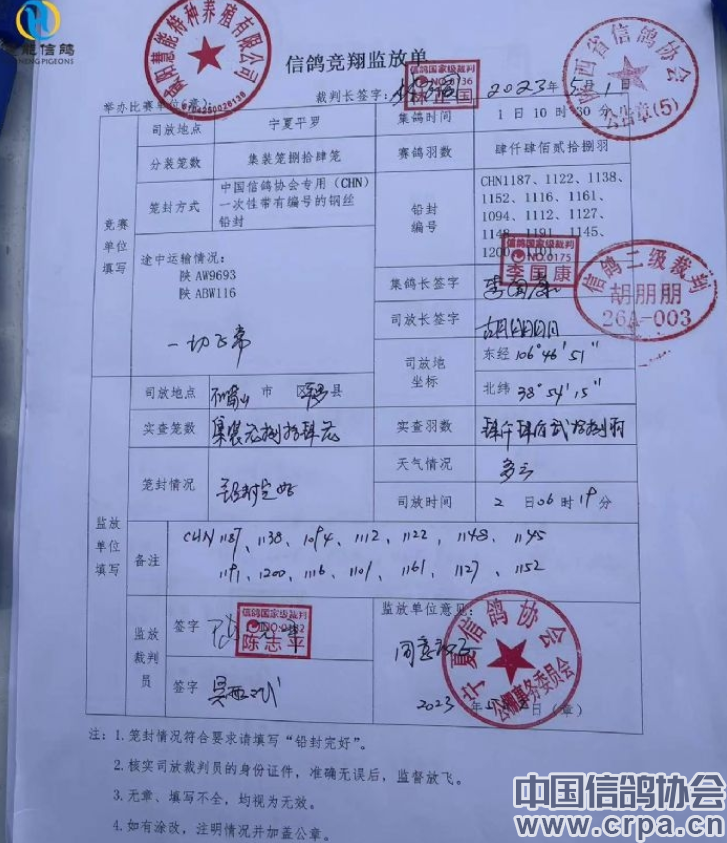 信鸽竞翔监放单
举办比赛单位(章):
裁判长签字: 2023年5月1日
司放地点 宁夏平罗 集鸽时间 1日10时30分
分装笼数 集装笼捌拾肆笼 赛鸽羽数 肆仟肆佰贰拾捌羽
竞赛单位填写
笼封方式 中国信鸽协会专用(CHN)
一次性带有编号的钢丝
铅封
铅封编号 CHN1187、1122、1138、
1152、1116、1161、
1094、1112、1127、
1148、1191、1145、
1200、1101
途中运输情况:
陕 AW9693
陕 ABW116
一切正常
集鸽长签字 李国康
司放长签字 胡朋朋
司放地坐标 东经 106°46′51″
北纬 38°54′15″
监放单位填写
司放地点 石嘴山市 区平罗县
实查笼数 集装笼捌拾肆笼 实查羽数 肆仟肆佰贰拾捌羽
笼封情况 铅封完好 天气情况 多云
司放时间 2日06时19分
备注 CHN1187、1138、1094、1112、1122、1148、1145
1191、1200、1116、1101、1161、1127、1152
监放裁判员 签字
签字
监放单位意见:
同意放飞
2023年5月2日(章)
注:1.笼封情况符合要求请填写“铅封完好”。
2.核实司放裁判员的身份证件,准确无误后,监督放飞。
3.无章、填写不全,均视为无效。
4.如有涂改,注明情况并加盖公章。
慧能特种养殖有限公司
陕西省信鸽协会
公告章(5)
信鸽国家级裁判
信鸽国家级裁判
NO.0175
李国康
信鸽二级裁判
胡朋朋
26A-003
信鸽国家级裁判
陈志平
宁夏信鸽协会
公棚赛事务委员会
慧能信鸽
HENG PIGEONS
中国信鸽协会
www.crpa.cn